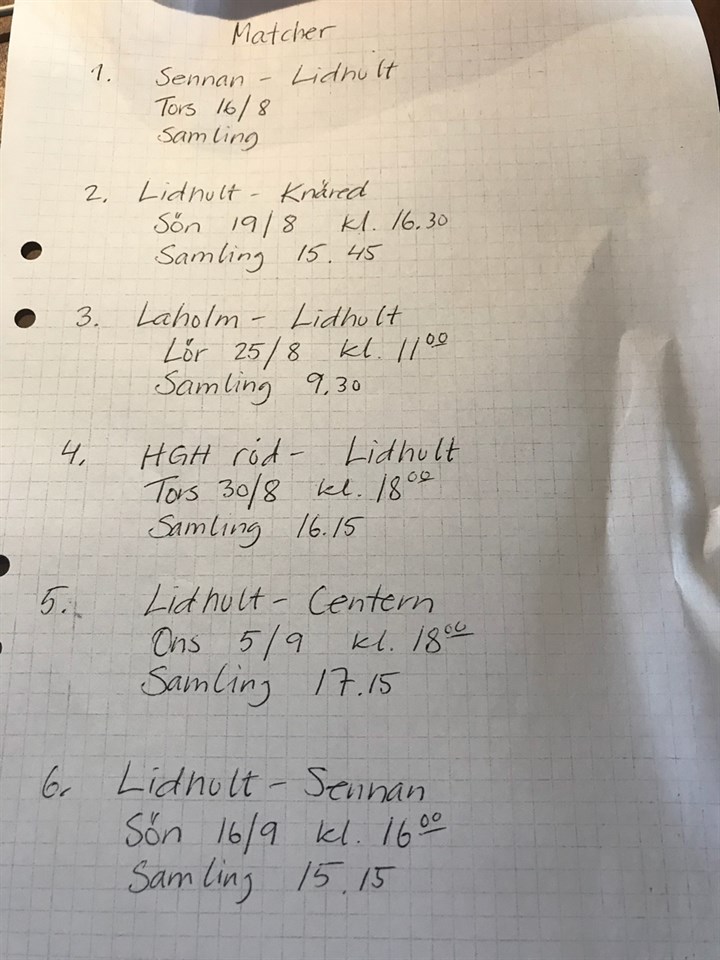 Matcher
1. Sennan - Lidhult
Tors 16/8
Samling
2. Lidhult - Knäred
Sön 19/8 kl. 16.30
Samling 15.45
3. Laholm - Lidhult
Lör 25/8 kl. 11⁰⁰
Samling 9.30
4. HGH röd - Lidhult
Tors 30/8 kl. 18⁰⁰
Samling 16.15
5. Lidhult - Centern
Ons 5/9 kl. 18⁰⁰
Samling 17.15
6. Lidhult - Sennan
Sön 16/9 kl. 16⁰⁰
Samling 15.15